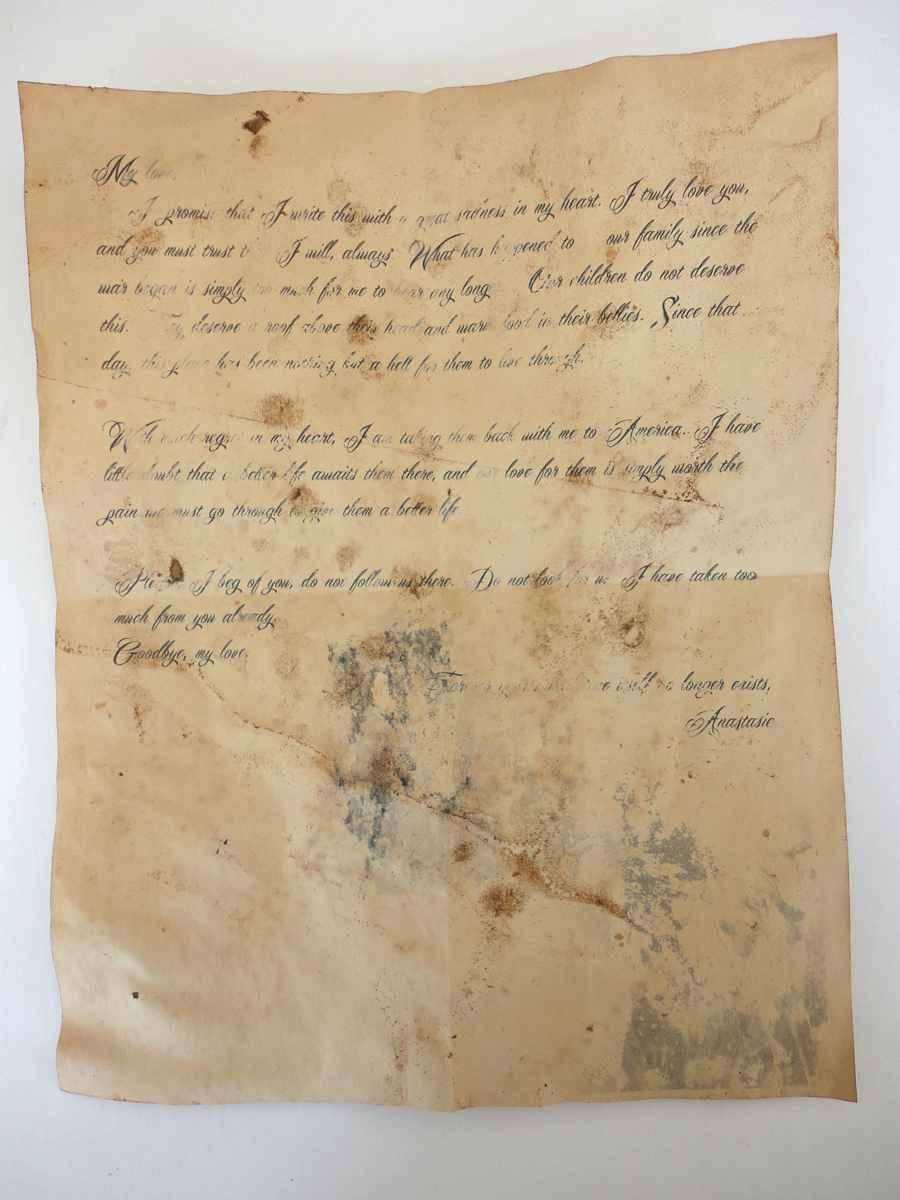 My love,
I promise that I write this with a great sadness in my heart. I truly love you,
and you must trust I will, always. What has happened to our family since the
war began is simply too much for me to bear any longer. Our children do not deserve
this. They deserve a roof above their head and warm food in their bellies. Since that
day, this place has been nothing but a hell for them to live through.
With much regret in my heart, I am taking them back with me to America. I have
little doubt that a better life awaits them there, and our love for them is simply worth the
pain we must go through to give them a better life
Please, I beg of you, do not follow us there. Do not look for us I have taken too
much from you already.
Goodbye, my love.
Forever yours, until time itself no longer exists,
Anastasie